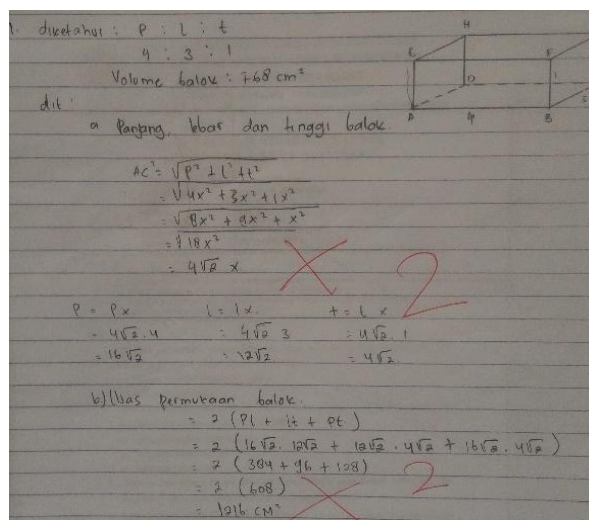 1. diketahui : P : l : t
4 : 3 : 1
Volume balok : 768 cm³
dit :
a. Panjang, lebar dan tinggi balok.
AC² = √P² + l² + t²
= √4x² + 3x² + 1x²
= √8x² + 9x² + x²
= √18x²
= 4√2 x
X 2
P = Px
= 4√2 . 4
= 16√2
l = lx.
= 4√2 3
= 12√2
t = t x
= 4√2 . 1
= 4√2
b) luas permukaan balok.
= 2 (Pl + lt + pt)
= 2 (16√2 . 12√2 + 12√2 . 4√2 + 16√2 . 4√2)
= 2 (384 + 96 + 128)
= 2 (608)
= 1216 CM²
X 2
H
E
F
D
A
4
B
1